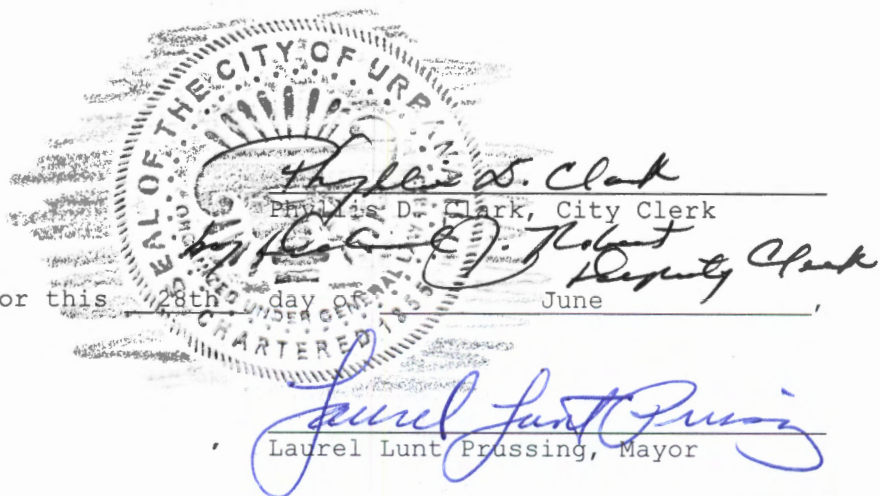 SEAL OF THE CITY OF URBANA
CHARTERED 1855
UNDER GENERAL LAW
Phyllis D. Clark
Phyllis D. Clark, City Clerk
by J. Robert
Deputy Clerk
or this 28th day of June ,
Laurel Lunt Prussing
Laurel Lunt Prussing, Mayor